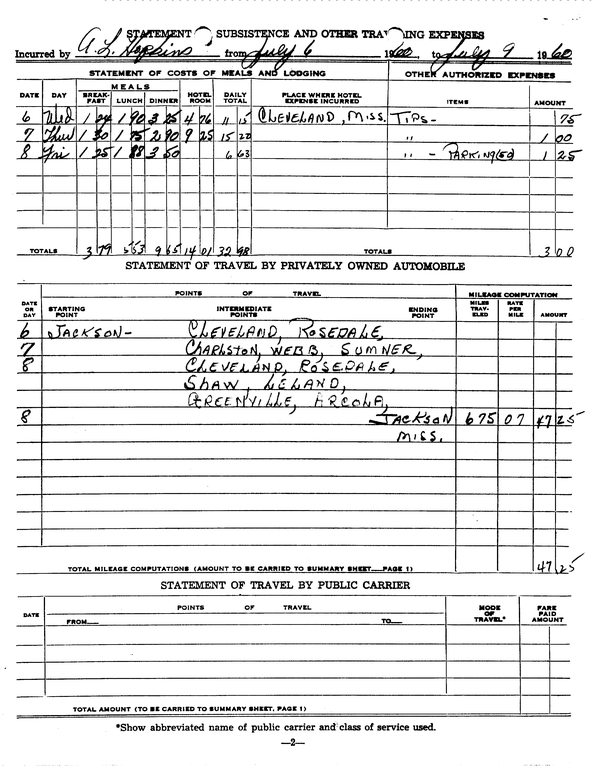 STATEMENT SUBSISTENCE AND OTHER TRAV ING EXPENSES
Incurred by A.L. Hopkins from July 6 1960 to July 9 1960
STATEMENT OF COSTS OF MEALS AND LODGING OTHER AUTHORIZED EXPENSES
MEALS
DATE DAY BREAK-FAST LUNCH DINNER HOTEL ROOM DAILY TOTAL PLACE WHERE HOTEL EXPENSE INCURRED ITEMS AMOUNT
6 Wed 1 24 1 90 3 25 4 76 11 15 CLEVELAND, MISS. TIPS- 75
7 Thur 1 30 1 75 2 90 9 25 15 20 " 1 00
8 Fri 1 25 1 88 3 50 6 63 " - PARKING(50) 1 25
TOTALS 3 79 5 53 9 65 14 01 32 98 TOTALS 3 00
STATEMENT OF TRAVEL BY PRIVATELY OWNED AUTOMOBILE
POINTS OF TRAVEL MILEAGE COMPUTATION
DATE OR DAY STARTING POINT INTERMEDIATE POINTS ENDING POINT MILES TRAV-ELED RATE PER MILE AMOUNT
6 JACKSON- CLEVELAND, ROSEDALE,
7 CHARLSTON, WEBB, SUMNER,
8 CLEVELAND, ROSEDALE,
SHAW, LELAND,
GREENVILLE, ARCOLA,
8 JACKSON 675 07 47 25
MISS.
TOTAL MILEAGE COMPUTATIONS (AMOUNT TO BE CARRIED TO SUMMARY SHEET PAGE 1) 47 25
STATEMENT OF TRAVEL BY PUBLIC CARRIER
DATE POINTS OF TRAVEL MODE OF TRAVEL* FARE PAID AMOUNT
FROM TO
TOTAL AMOUNT (TO BE CARRIED TO SUMMARY SHEET, PAGE 1)
*Show abbreviated name of public carrier and class of service used.
—2—